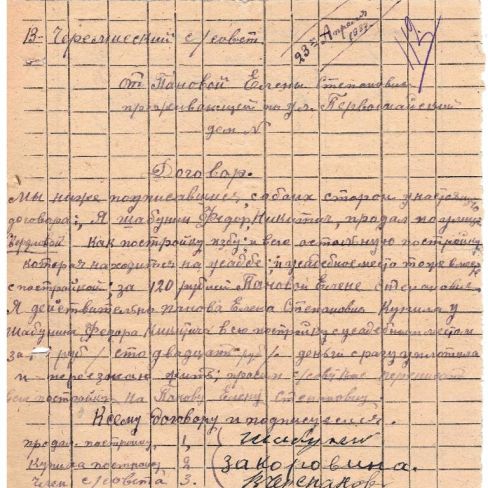 В- Черемисский с/совет
23го Апреля
119.
от Пановой Елены Степановны
проживающей по ул. Первомайский
дом №
Договор.
Мы ниже подписавшиеся, с обоих сторон у настоящ
договора:, Я Шабунин Федор Никитич, продал по улице
как постройку избу; и всю остольную постройку
которая находиться на усадьбе; и усадебное место тоже вместе
с постройкой, за 120 рублей Пановой Елене Степановне.
Я действительно Панова Елена Степановна Купила у
Шабунина Федора Никитича всю постройку с усадебным местом
за руб/ сто двадцать руб/ деньги сразу уплотила
и переезжаю жить; просим с/совет переписать
постройки на Панову Елену Степановну.
К сему договору и подписуемся.
продал постройку, 1
Купила постройку, 2 закоровина.
член с/совета 3.